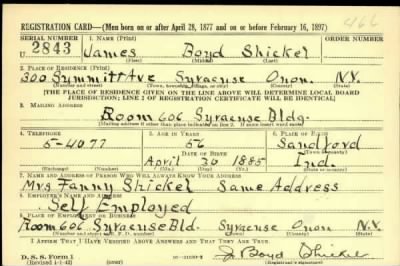 466
REGISTRATION CARD—(Men born on or after April 28, 1877 and on or before February 16, 1897)
SERIAL NUMBER 1. NAME (Print) ORDER NUMBER
U 2843 James Boyd Shickel
(First) (Middle) (Last)
2. PLACE OF RESIDENCE (Print)
300 Summitt Ave Syracuse Onon. N.Y.
(Number and street) (Town, township, village, or city) (County) (State)
[THE PLACE OF RESIDENCE GIVEN ON THE LINE ABOVE WILL DETERMINE LOCAL BOARD
JURISDICTION; LINE 2 OF REGISTRATION CERTIFICATE WILL BE IDENTICAL]
3. MAILING ADDRESS
Room 606 Syracuse Bldg.
[Mailing address if other than place indicated on line 2. If same insert word same]
4. TELEPHONE 5. AGE IN YEARS 6. PLACE OF BIRTH
5-4077 56 Sandford
DATE OF BIRTH
April 30 1885 Ind.
7. NAME AND ADDRESS OF PERSON WHO WILL ALWAYS KNOW YOUR ADDRESS
Mrs Fanny Shickel Same Address
8. EMPLOYER'S NAME AND ADDRESS
Self Employed
9. PLACE OF EMPLOYMENT OR BUSINESS
Room 606 Syracuse Bld. Syracuse Onon N.Y.
I AFFIRM THAT I HAVE VERIFIED ABOVE ANSWERS AND THAT THEY ARE TRUE.
D. S. S. Form 1 J. Boyd Shickel
(Revised 4-1-42) (Registrant's signature)